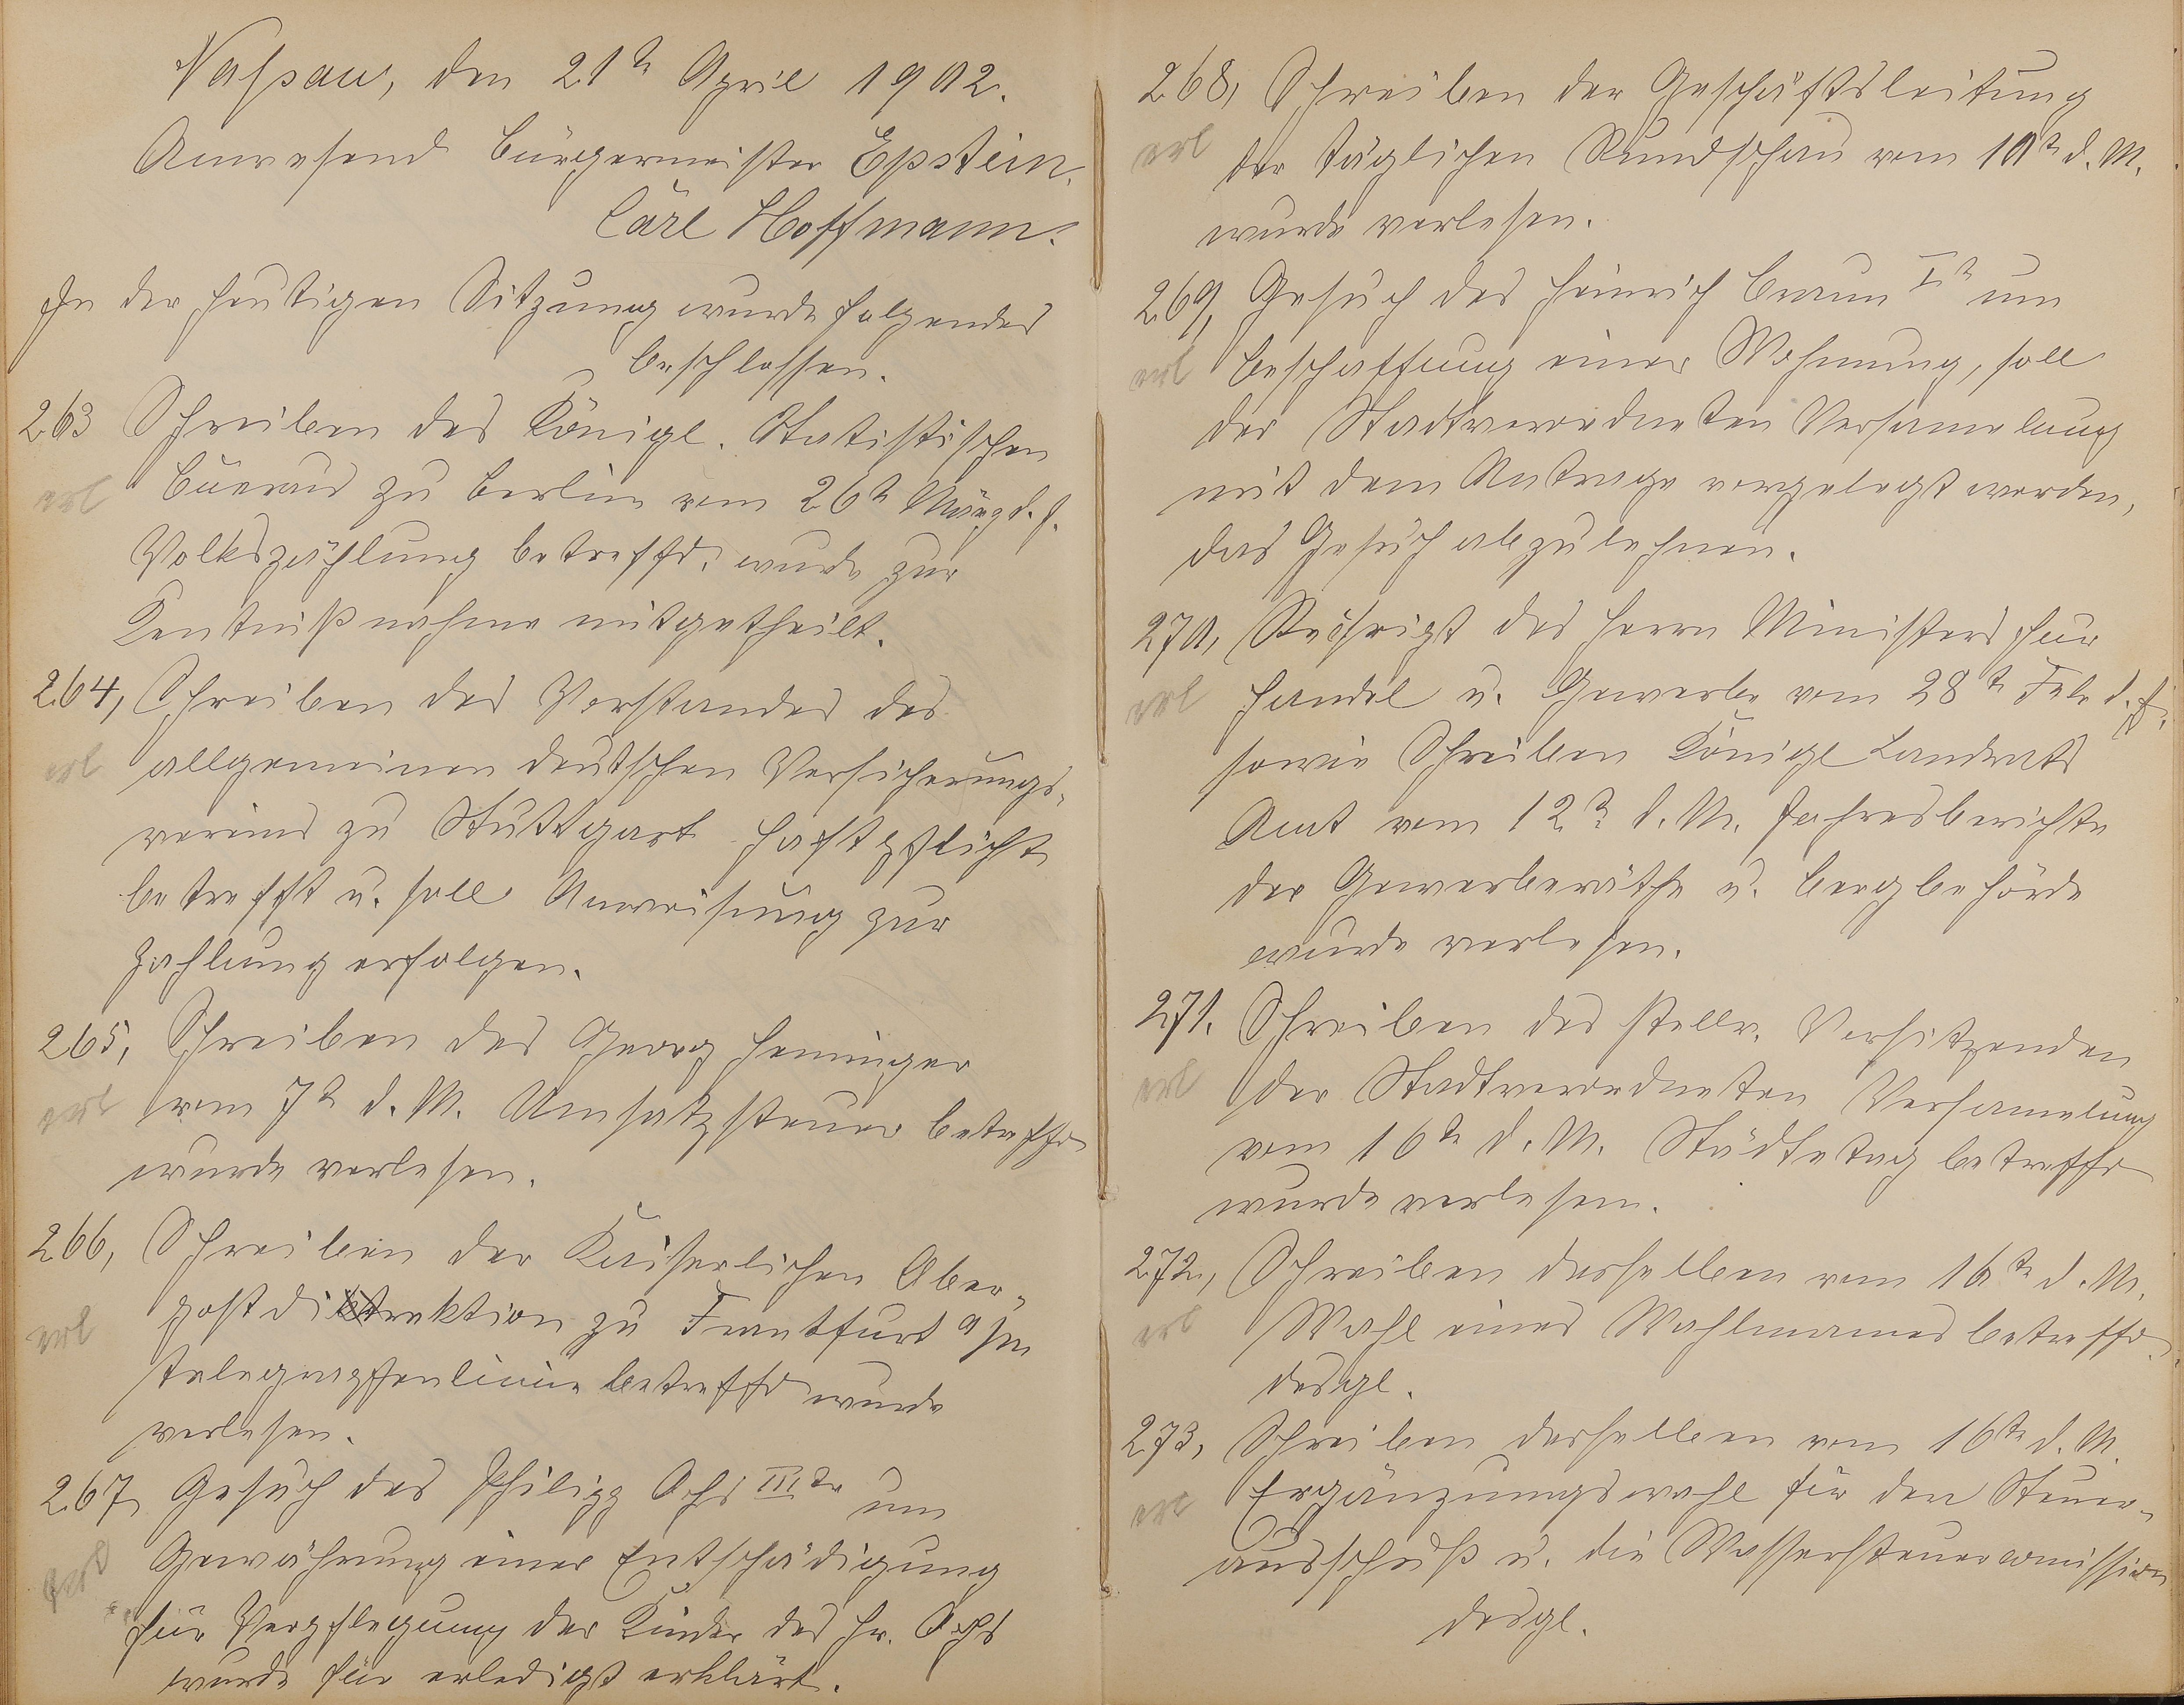 Nassau, den 21t April 1902.
Anwesend Bürgermeister Epstein.
Carl Hoffmann.
In der heutigen Sitzung wurde folgendes
beschlossen.
263 Schreiben des Königl. Statistischen
erl Büeraus zu Berlin vom 26t März d. J.
Volkszählung betreffd. wurde zur
Kentnißnahme mitgetheilt.
264, Schreiben des Vorstandes des
erl allgemeinen deutschen Versicherungs-
vereins zu Stuttgart Haftpflicht
betrefft u. soll Anweisung zur
Zahlung erfolgen.
265, Schreiben des Georg Heninger
erl vom 7t d. M. Umsatzsteuer betreffd
wurde verlesen.
266, Schreiben der Kaiserlichen Ober-
erl postdirektion zu Frankfurt a/m
Telegraphenlinie betreffd wurde
verlesen.
267, Gesuch des Philipp Ochs IIIte um
Gewährung einer Entschädigung
für Verpflegung der Kinder des Hr. Ochs
wurde für erledigt erklärt.
268, Schreiben der Geschäftsleitung
erl der täglichen Rundschau vom 10t d. M.
wurde verlesen.
269, Gesuch des Heinrich Braun It um
erl Beschaffung einer Wohnung, soll
der Stadtverordneten Versamelung
mit dem Antrage vorgelegt werden,
das Gesuch abzulehnen.
270, des Herrn Ministers für
erl Handel u. Gewerbe vom 28t Feb d. J.
sowie Schreiben Königl Landrats
Amt vom 12t d. M. Jahresberichte
der Gewerberäthe u. Bergbehörde
wurde verlesen.
271. Schreiben des stellv. Vorsitzenden
erl der Stadtverordneten Versamelung
vom 16t d. M. Städtetag betreffd
wurde verlesen.
272, Schreiben desselben vom 16te d. M.
erl Wahl eines Wahlmannes betreffd.
desgl.
273, Schreiben desselben vom 16te d. M.
erl Ergänzungswahl für den Steuer-
ausschuß u. die Wassersteuercomission
desgl.